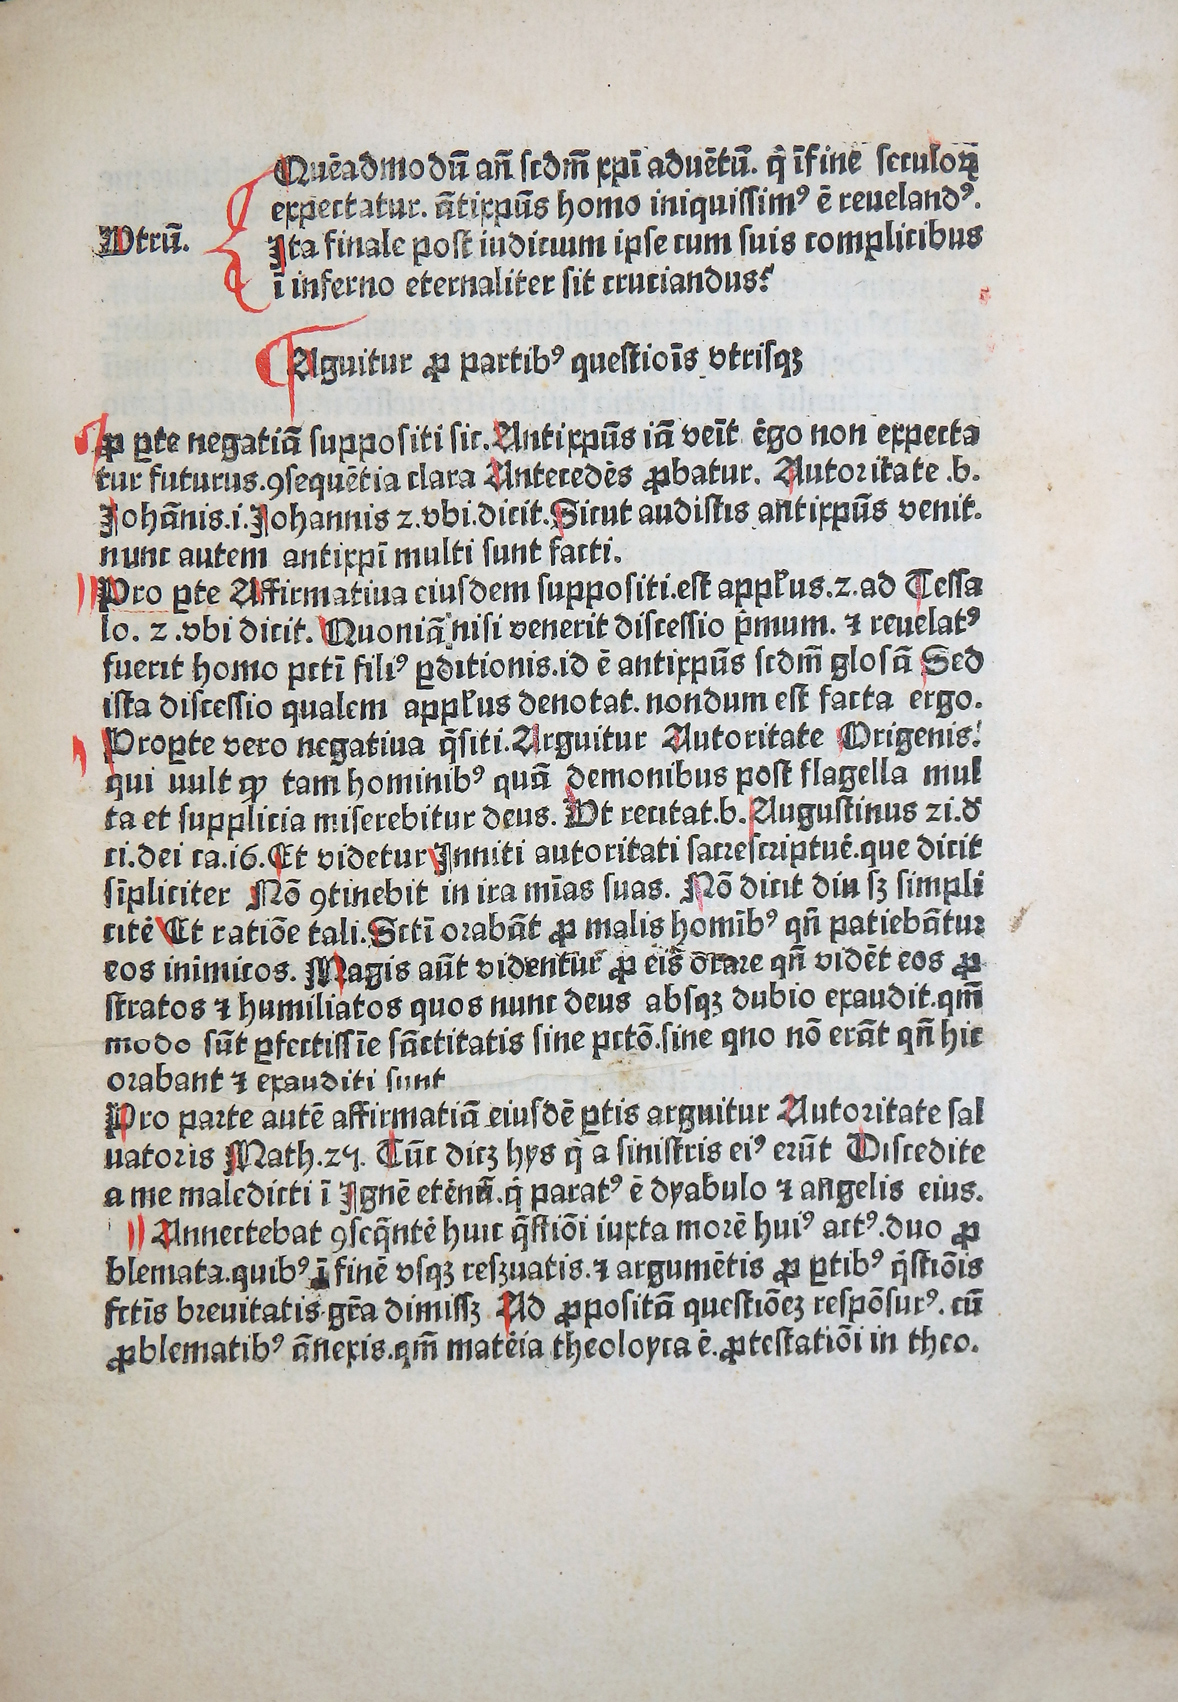 Quēadmodū an̄ scdm̄ xpī aduētū. q̄ ī fine seculoꝝ
expectatur. ātixpūs homo iniquissimꝰ ē reuelandꝰ.
Vtrū.
Ita finale post iudicium ipse cum suis complicibus
ī inferno eternaliter sit cruciandus?
Aguitur ꝓ partibꝰ questiōis vtrisqꝫ
ꝓ ꝑte negatiā suppositi sic. Antixpūs iā veīt ēgo non expecta
tur futurus. ꝯsequētia clara Antecedēs ꝓbatur. Autoritate .b.
Johānis. i. Johannis 2. vbi. dicit. Sicut audistis antixpūs venit.
nunc autem antixpī multi sunt facti.
Pro ꝑte Affirmatiua eiusdem suppositi. est appl̄us. 2. ad Tessa
lo. 2 .vbi dicit. Quoniā nisi venerit discessio p̄mum. ⁊ reuelatꝰ
fuerit homo pctī filiꝰ ꝑditionis. id ē antixpūs scdm̄ glosā Sed
ista discessio qualem appl̄us denotat. nondum est facta ergo.
Proꝑte vero negatiua q̄siti. Arguitur Autoritate Origenis!
qui uult ꝙ tam hominibꝰ quā demonibus post flagella mul
ta et supplicia miserebitur deus. Vt recitat. b. Augustinus 21. đ
ci. dei ca. 16. Et videtur Inniti autoritati sacrescriptuē. que dicit
sīpliciter Nō ꝯtinebit in ira mīas suas. Nō dicit diu sꝫ simpli
citē Et ratiōe tali. Sctī orabāt ꝓ malis homībꝰ qn̄ patiebātur
eos inimicos. Magis aūt videntūr ꝓ eis ōrare qn̄ vidēt eos ꝓ
stratos ⁊ humiliatos quos nunc deus absqꝫ dubio exaudit. qm̄
modo sūt ꝑfectissīe sāctitatis sine pctō. sine quo nō erāt qn̄ hic
orabant ⁊ exauditi sunt
Pro parte autē affirmatiā eiusdē ꝑtis arguitur Autoritate sal
uatoris Math. 25. Tūc dicꝫ hys q̄ a sinistris eiꝰ erūt Discedite
a me maledicti ī Ignē etēnū. q̄ paratꝰ ē dyabulo ⁊ angelis eius.
Annectebat ꝯseq̄ntē huic q̄stiōi iuxta morē huiꝰ actꝰ. duo ꝓ
blemata. quibꝰ ī finē vsqꝫ resꝫuatis. ⁊ argumētis ꝓ ꝑtibꝰ q̄stiōis
fctīs breuitatis gr̄a dimissꝫ Ad ꝓpositā questiōeꝫ respōsurꝰ. cū
ꝓblematibꝰ ānexis. qm̄ matēia theoloyca ē. ꝓtestatiōi in theo.